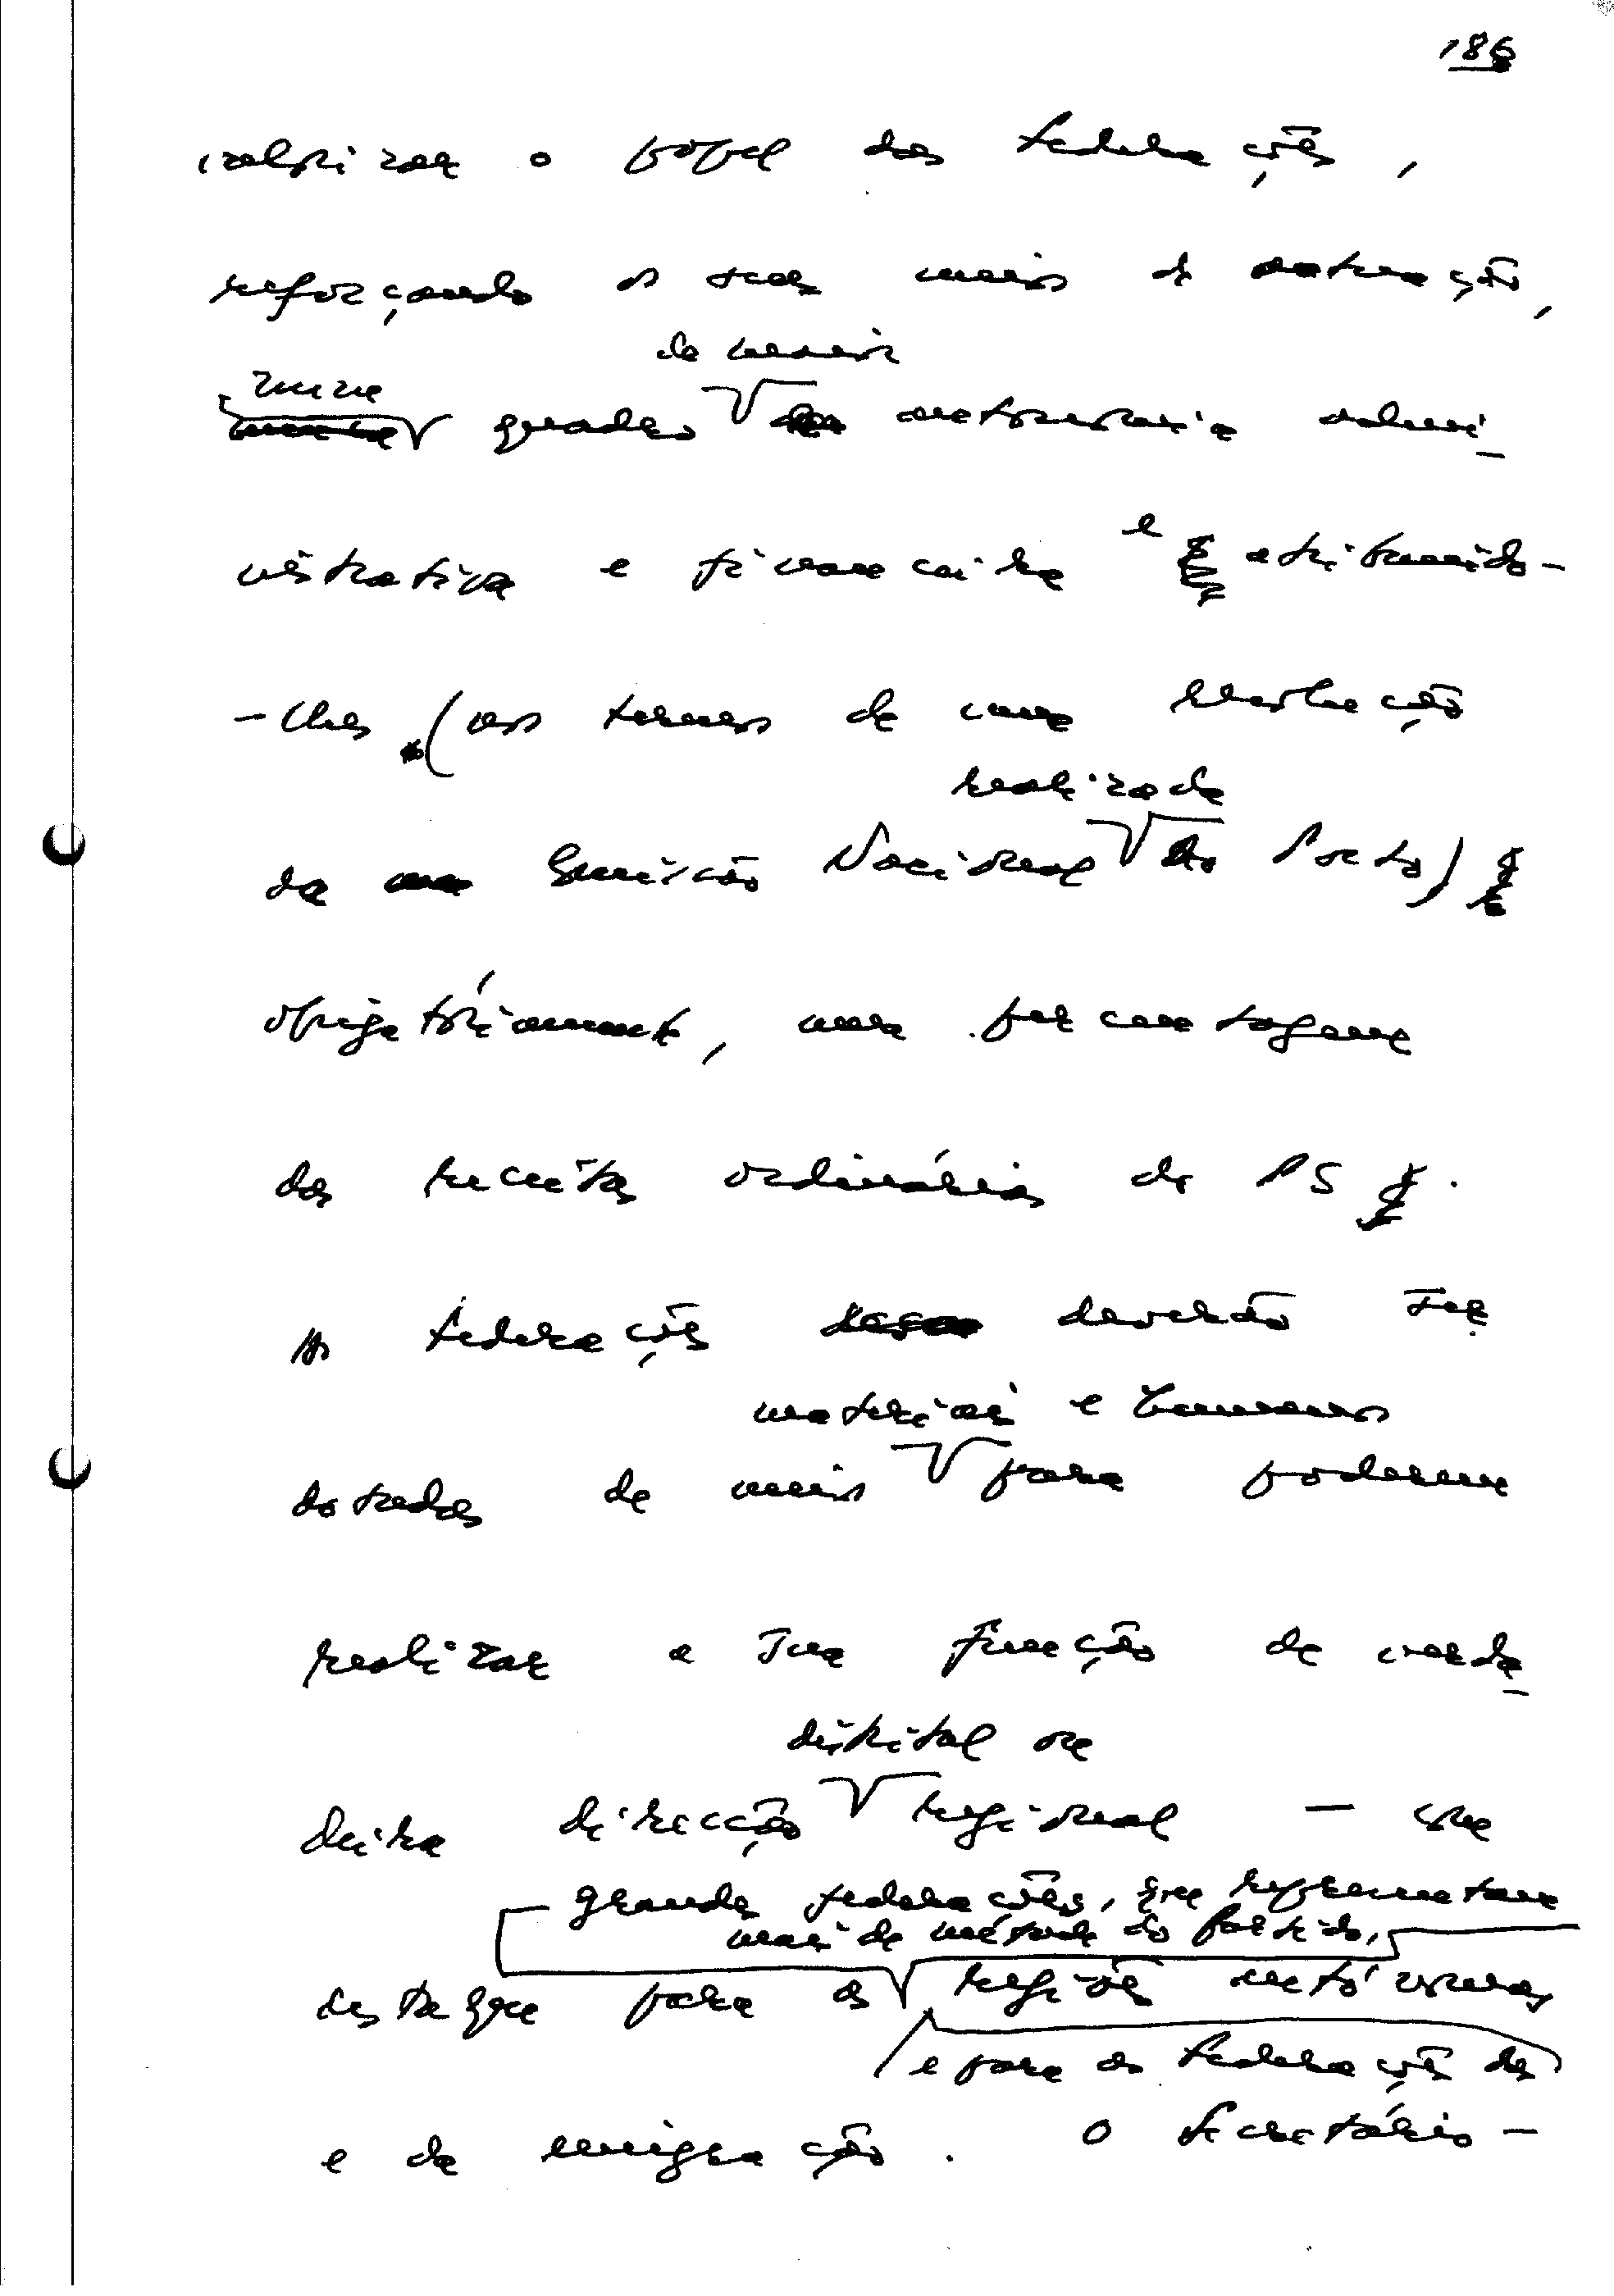 186
valorizar o papel das federações,
reforçando os seus meios de actuação,
de maior
num
quadro autonomia admi-
nistrativa e financeira e atribuindo-
-lhes (nos termos de uma resolução
realizada
da Comissão Nacional do Porto)
obrigatóriamente, uma percentagem
das receitas ordinárias do PS.
As federações deverão ser
materiais e humanos
dotadas de meios para poderem
realizar a sua função de verda-
distrital ou
deira direcção regional — com
grandes federações, que representam
mais de metade do partido,
destaque para as regiões autónomas
e para as federações das
e da emigração. O Secretário-